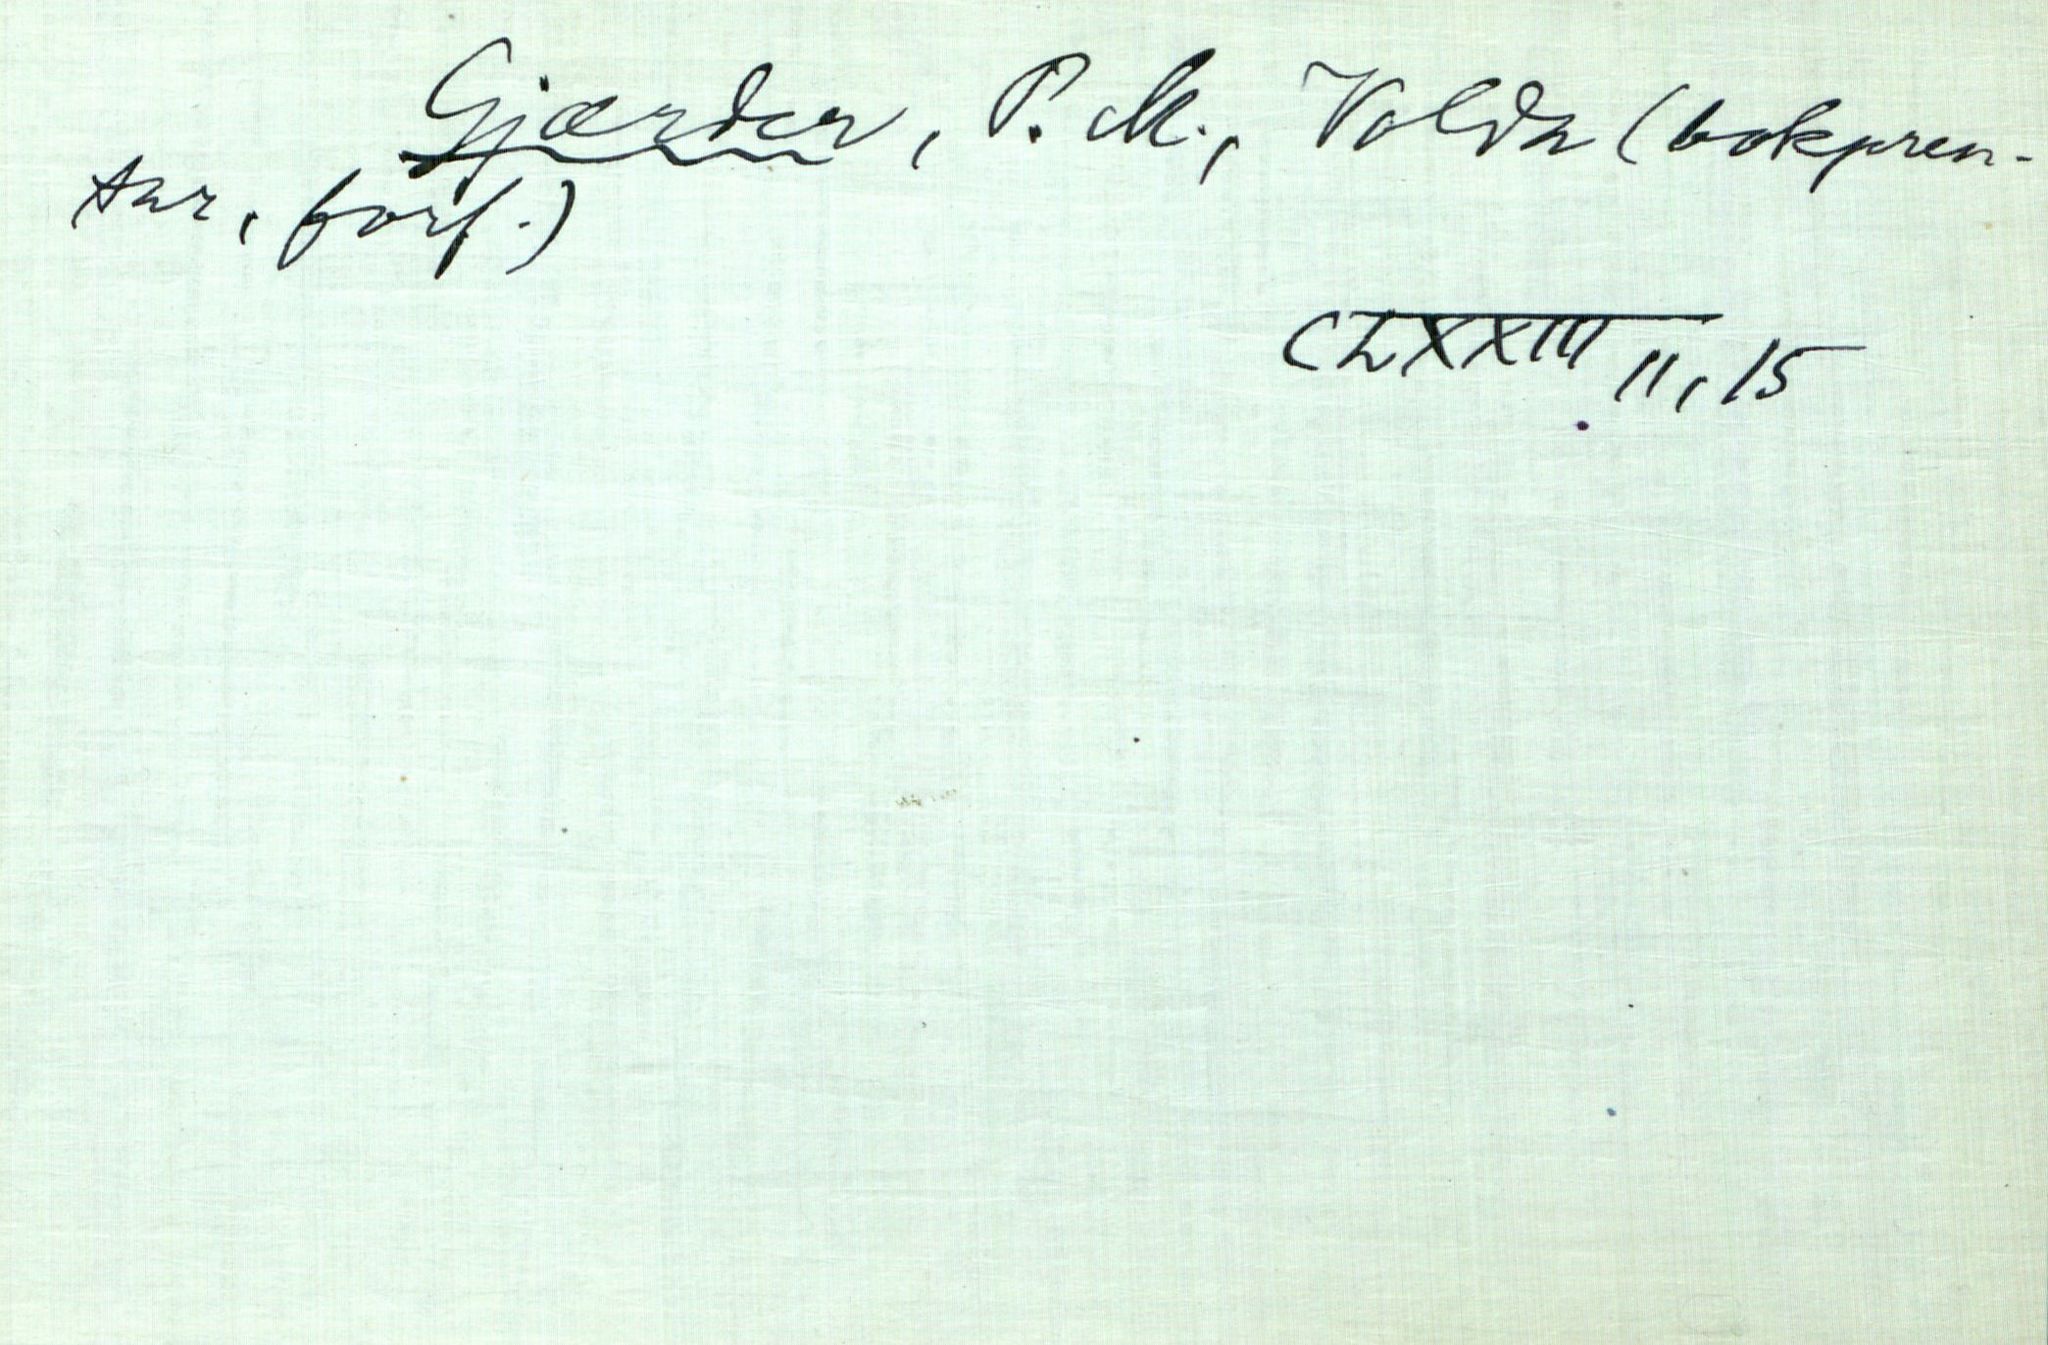 Gjærder, P. M., Volda (bokpren-
tar, forf.)
CLXXIII II, 15